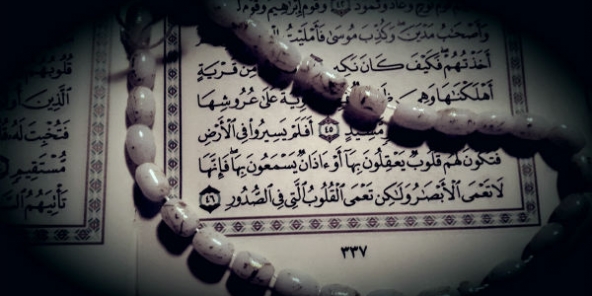 قَوْمُ نُوحٍ وَعَادٌ وَثَمُودُ ٤٢ وَقَوْمُ إِبْرَٰهِيمَ وَقَوْمُ
وَأَصْحَٰبُ مَدْيَنَ وَكُذِّبَ مُوسَىٰ فَأَمْلَيْتُ
أَخَذْتُهُمْ فَكَيْفَ كَانَ نَكِ مِّن قَرْيَةٍ
أَهْلَكْنَٰهَا وَهِيَ عَلَىٰ عُرُوشِهَا
مَّشِيدٍ ٤٥ أَفَلَمْ يَسِيرُوا۟ فِي ٱلْأَرْضِ
فَتَكُونَ لَهُمْ قُلُوبٌ يَعْقِلُونَ بِهَآ أَوْ ءَاذَانٌ يَسْمَعُونَ بِهَا فَإِنَّهَا
لَا تَعْمَى ٱلْأَبْصَٰرُ وَلَٰكِن تَعْمَى ٱلْقُلُوبُ ٱلَّتِي فِي ٱلصُّدُورِ ٤٦
٣٣٧
قُلُوبُهُمْ
ٱلَّذِينَ أُو
فَتُخْبِتَ لَهُ
مُّسْتَقِيمٍ
تَأْتِيَهُمُ